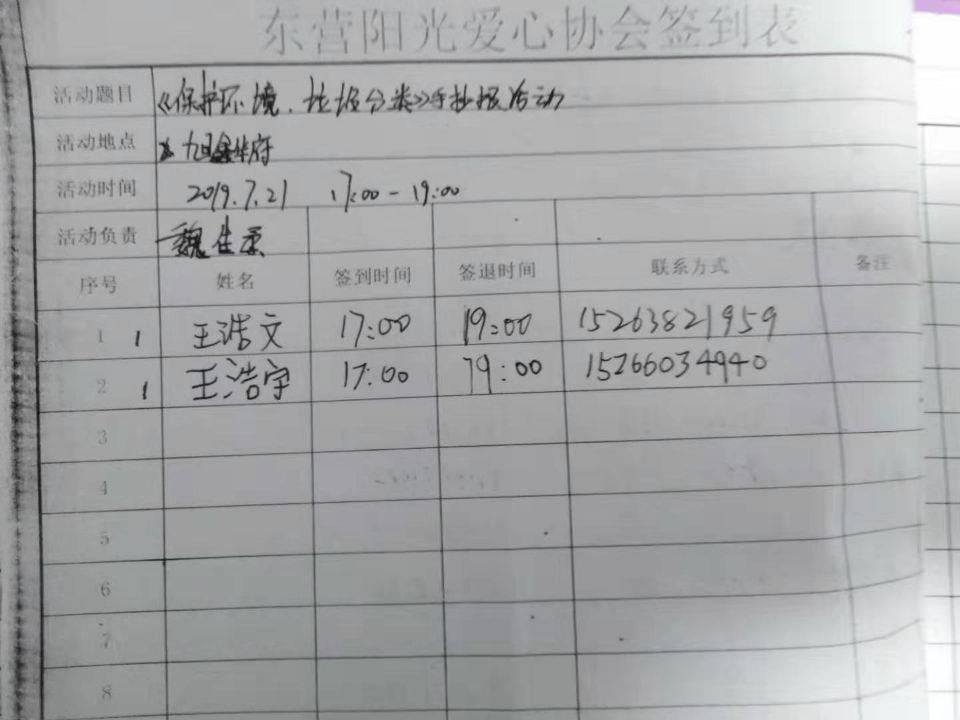 东营阳光爱心协会签到表
活动题目 《保护环境、垃圾分类》手抄报活动
活动地点 华府
活动时间 2019.7.21 17:00-19:00
活动负责 魏佳
序号 姓名 签到时间 签退时间 联系方式 备注
1 1 王浩文 17:00 19:00 15263821959
2 1 王浩宇 17:00 19:00 15266034940
3
4
5
6
7
8